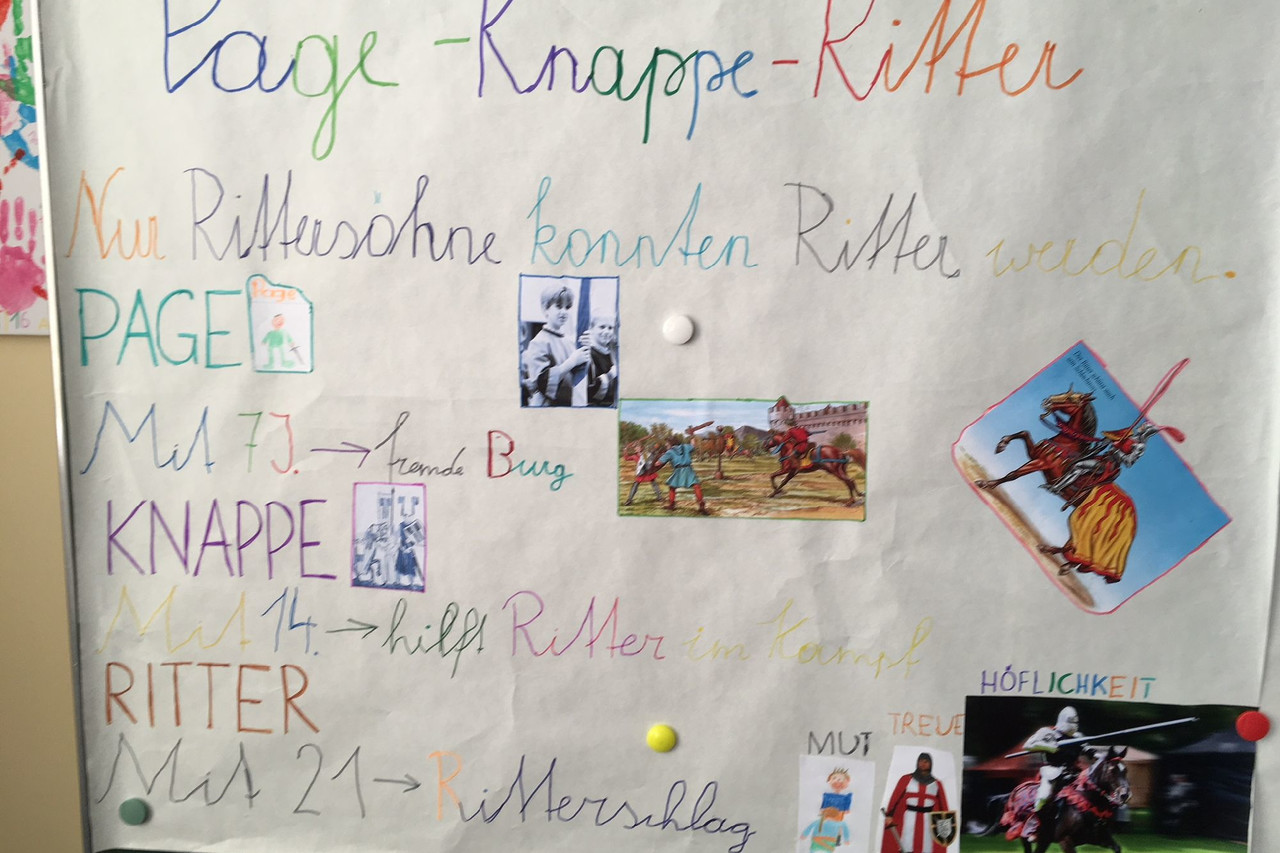 Page - Knappe - Ritter
Nur Rittersöhne konnten Ritter werden.
PAGE
Page
Mit 7J. → fremde Burg
KNAPPE
Mit 14. → hilft Ritter im Kampf
RITTER
Mit 21 → Ritterschlag
MUT
TREUE
HÖFLICHKEIT
16